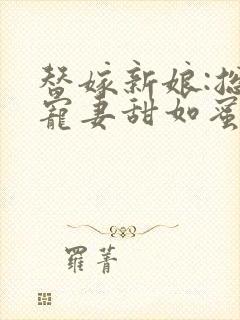 替嫁新娘:总
寵妻甜如蜜
羅菁